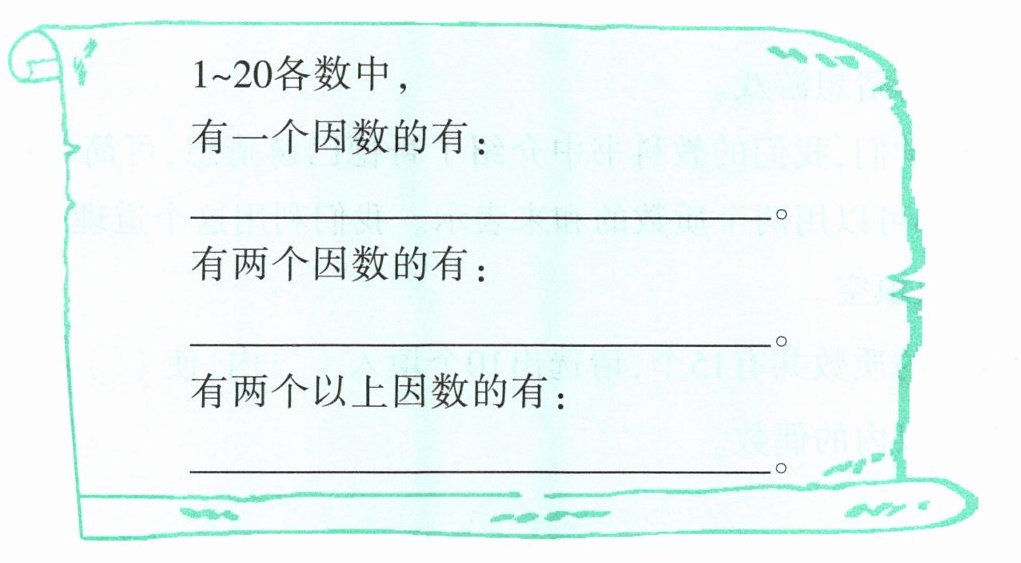 1~20各数中，
有一个因数的有：
。
有两个因数的有：
。
有两个以上因数的有：
。